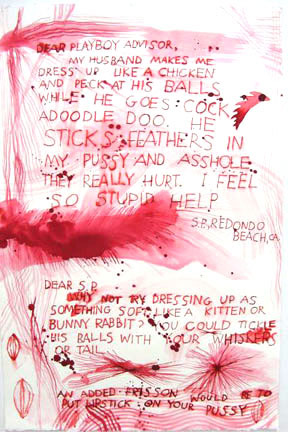 DEAR PLAYBOY ADVISOR,
MY HUSBAND MAKES ME
DRESS UP LIKE A CHICKEN
AND PECK AT HIS BALLS
WHILE HE GOES COCK
ADOODLE DOO. HE
STICKS FEATHERS IN
MY PUSSY AND ASSHOLE
THEY REALLY HURT. I FEEL
SO STUPID HELP
S.P., REDONDO
BEACH, CA.
DEAR S.P.
WHY NOT TRY DRESSING UP AS
SOMETHING SOFT LIKE A KITTEN OR
BUNNY RABBIT? YOU COULD TICKLE
HIS BALLS WITH YOUR WHISKERS
OR TAIL.
AN ADDED FRISSON WOULD BE TO
PUT LIPSTICK ON YOUR PUSSY